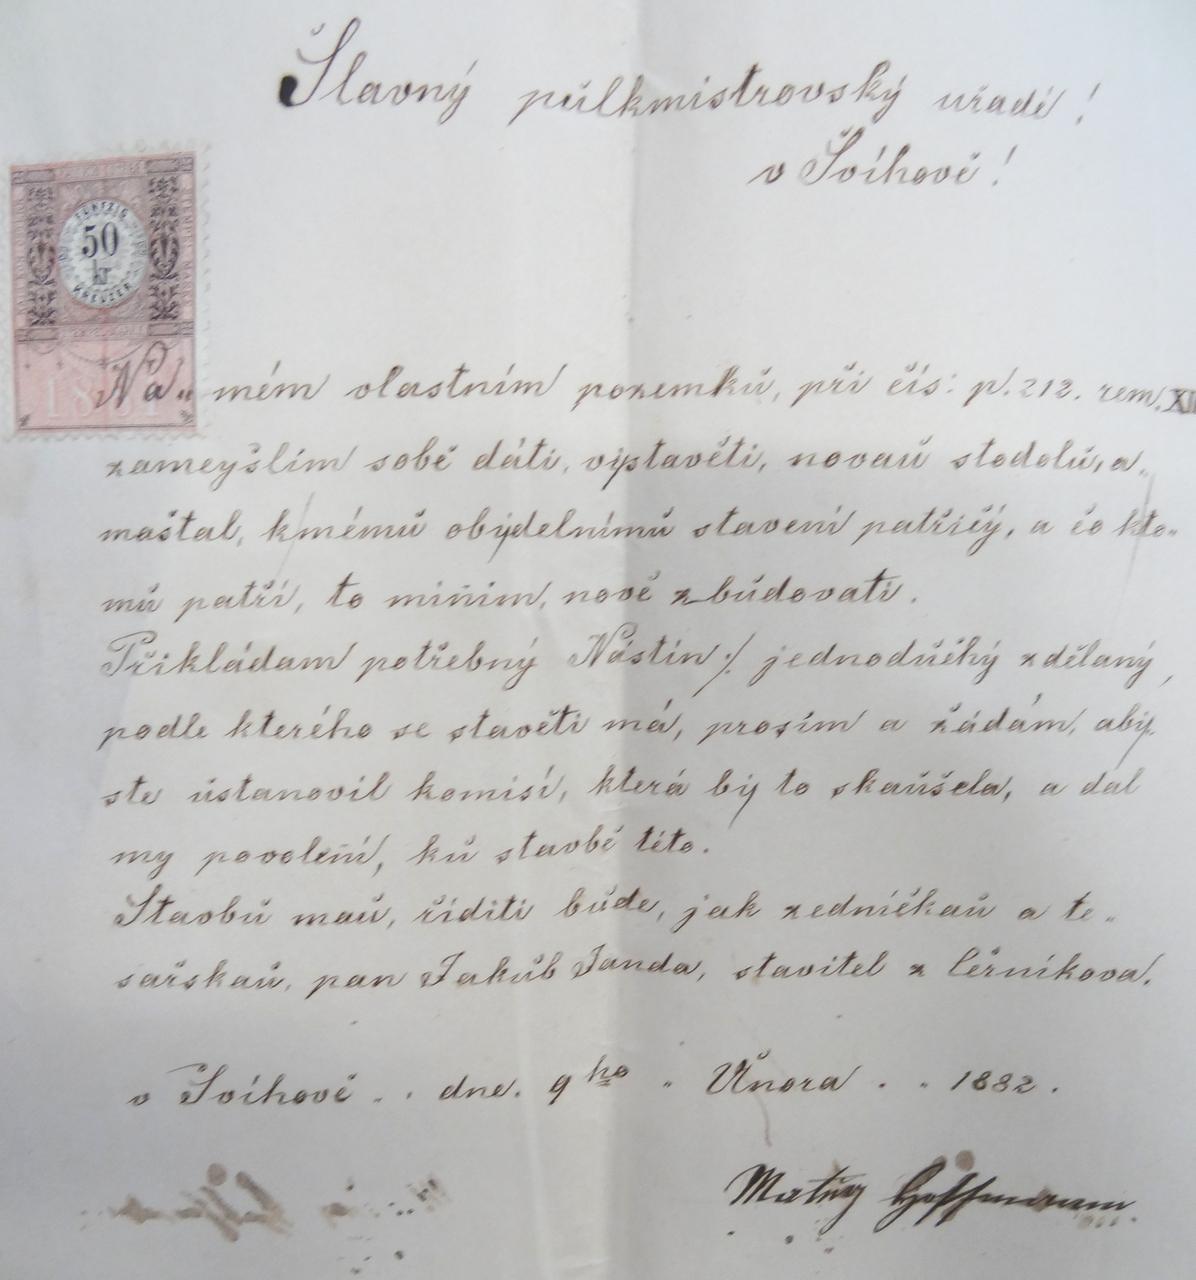 Šlavný půlkmistrovský uřadě!
v Švíhově!
FÜNFZIG
50
kr
KREUZER
1881
Na mém vlastním pozemků, při čís: p. 212. rem. XII
zameyšlím sobě dáti, vystavěti, novaů stodolů, a„
maštal, k mémů obydelnímů stavení patřičý, a čo kto„
mů patří, to miním, nově zbůdovati.
Přikládám potřebný Nástin :/ jednodůchý zdělaný,
podle kterého se stavěti má, prosím a žádám, aby„
ste ůstanovil komisí, která by to skaůšela, a dal
my povolení, ků stavbě této.
Stavbů maů, říditi bůde, jak zedníčkaů a te„
sařskaů, pan Jakůb Janda, stavitel z Černíkova.
v Švíhově . . dne. 9ho „ Února . „ 1882.
Matěy Hoffmann